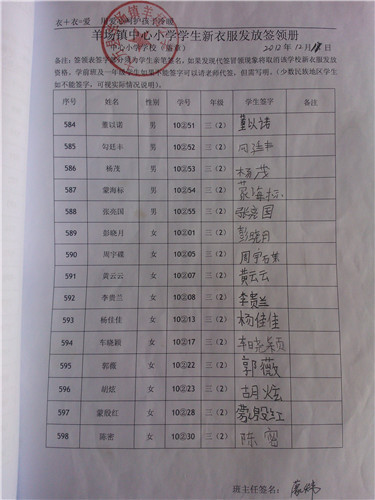 衣+衣=爱
羊场镇中心小学学生新衣服发放签领册
中心小学学校
2012年12月18日
备注：签领表签字部分需为学生亲笔签名，如果发现代签冒领现象将取消该学校新衣服发放
资格。学前班及一年级学生如果不能签字可以请老师代签，但需写明。（少数民族地区学生
如不能签字，可视实际情况说明）。
序号 姓名 性别 学号 年级 学生签字 备注
584 董以诺 男 10②51 三（2） 董以诺
585 勾廷丰 男 10②52 三（2） 勾廷丰
586 杨茂 男 10②53 三（2） 杨茂
587 蒙海标 男 10②54 三（2） 蒙海标
588 张亮国 男 10②55 三（2） 张亮国
589 彭晓月 女 10②01 三（2） 彭晓月
590 周宇碟 女 10②05 三（2） 周宇
591 黄云云 女 10②07 三（2） 黄云云
592 李贵兰 女 10②08 三（2） 李贵兰
593 杨佳佳 女 10②13 三（2） 杨佳佳
594 车晓颖 女 10②17 三（2） 车晓颖
595 郭薇 女 10②22 三（2） 郭薇
596 胡炫 女 10②23 三（2） 胡炫
597 蒙殷红 女 10②28 三（2） 蒙殷红
598 陈密 女 10②30 三（2） 陈密
班主任签名：